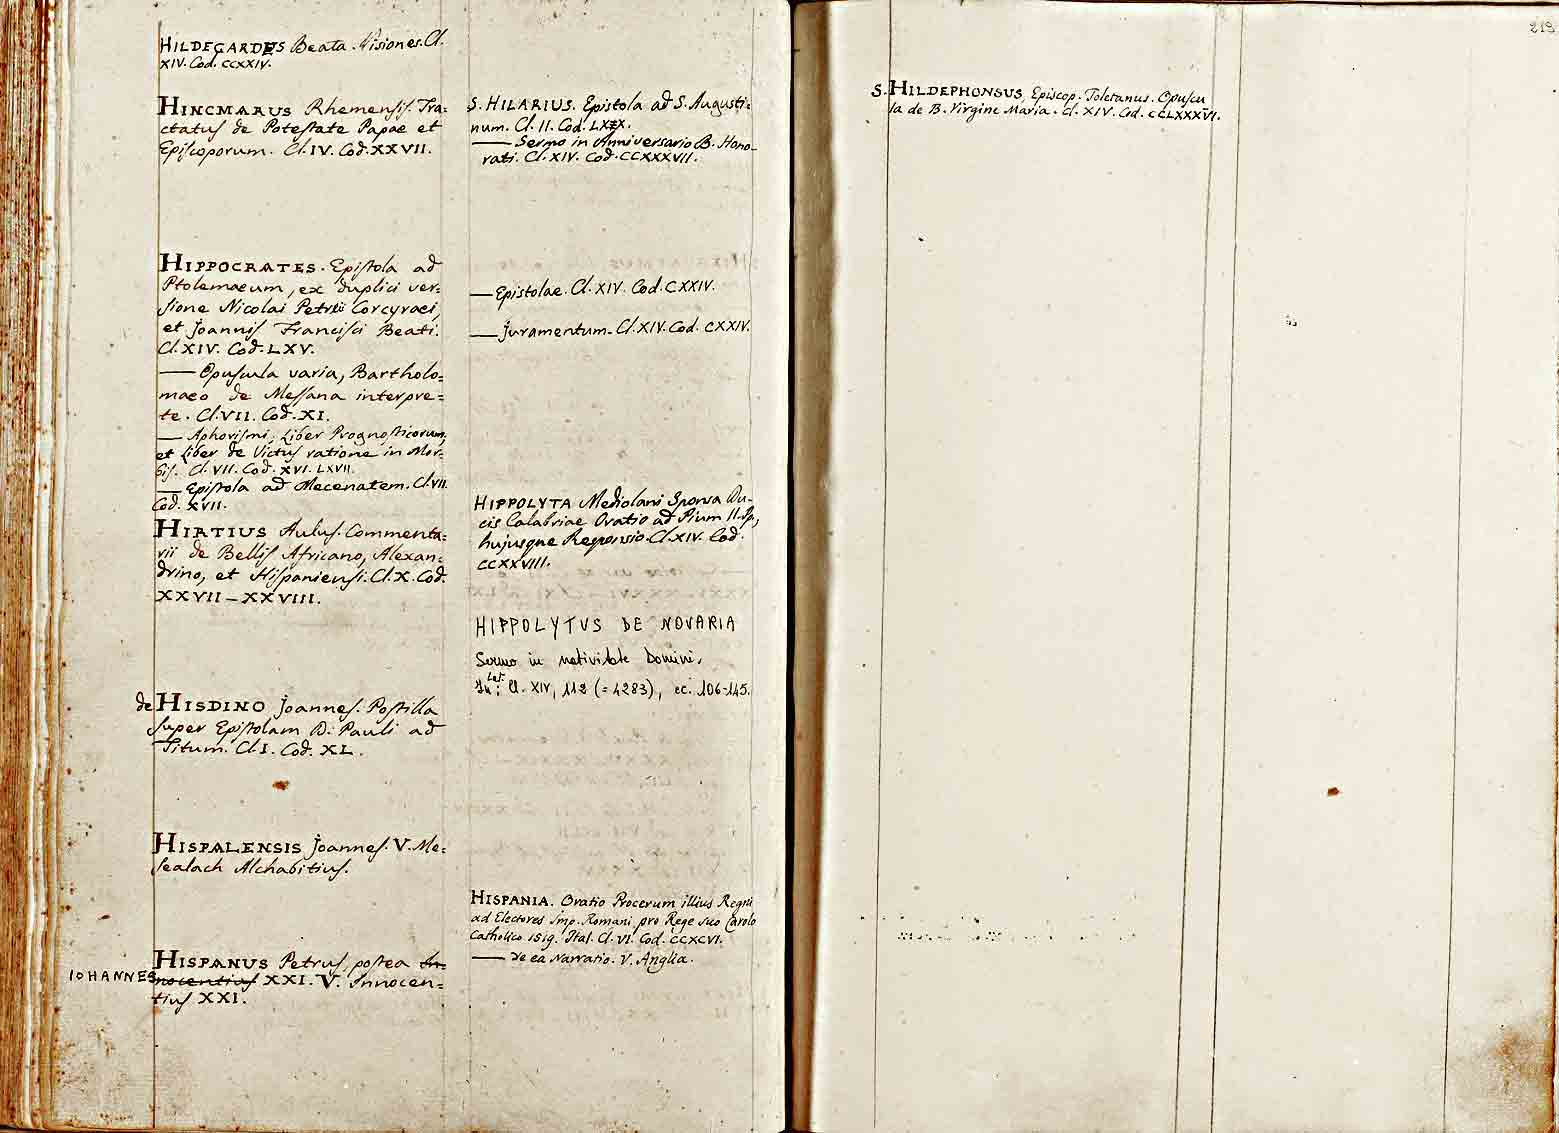 HILDEGARDES Beata. Visiones. Cl.
XIV. Cod. CCXXIV.
HINCMARUS Rhemensis. Tra=
ctatus de Potestate Papae et
Episcoporum. Cl. IV. Cod. XXVII.
HIPPOCRATES. Epistola ad
Ptolemaeum, ex duplici ver=
sione Nicolai Petrii Corcyraei,
et Joannis Francisci Beati.
Cl. XIV. Cod. LXV.
— Opuscula varia, Bartholo=
maeo de Messana interpre=
te. Cl. VII. Cod. XI.
— Aphorismi, Liber Prognosticorum,
et Liber de Victus ratione in Mor=
bis. Cl. VII. Cod. XVI. LXVII.
— Epistola ad Mecenatem. Cl. VII.
Cod. XVII.
HIRTIUS Aulus. Commenta=
rii de Bellis Africano, Alexan=
drino, et Hispaniensi. Cl. X. Cod.
XXVII – XXVIII.
de HISDINO Joannes. Postilla
super Epistolam D. Pauli ad
Titum. Cl. I. Cod. XL.
HISPALENSIS Joannes. V. Me=
sealach Alchabitius.
HISPANUS Petrus, postea In=
IOHANNES nocentius XXI. V. Innocen=
tius XXI.
S. HILARIUS. Epistola ad S. Augusti=
num. Cl. II. Cod.
— Sermo in Anniversario B. Hono=
rati. Cl. XIV. Cod. CCXXXVII.
— Epistolae. Cl. XIV. Cod. CXXIV.
— Juramentum. Cl. XIV. Cod. CXXIV.
HIPPOLYTA Mediolani Sponsa Du=
cis Calabriae Oratio ad Pium II. Pp,
hujusque Responsio. Cl. XIV. Cod.
CCXXVIII.
HIPPOLYTUS DE NOVARIA
Sermo in nativitate Domini.
Lat.
In: Cl. XIV, 112 (= 4283), cc. 106-145.
HISPANIA. Oratio Procerum illius Regni
ad Electores Imp. Romani pro Rege suo Carolo
Catholico 1519. Ital. Cl. VI. Cod. CCXCVI.
— de ea Narratio. V. Anglia.
213
S. HILDEPHONSUS Episcop. Toletanus. Opuscu
la de B. Virgine Maria. Cl. XIV. Cod. CCLXXXVI.